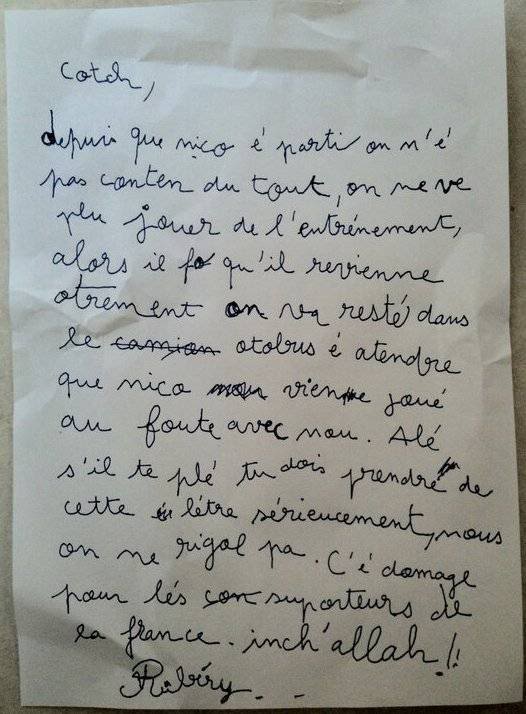 Cotch,
depuis que nico é parti on n'é
pas conten du tout, on ne ve
plu jouer de l'entrénement,
alors il fo qu'il revienne
otrement on va resté dans
le camion otobus é atendre
que nico vienne joué
au foute avec nou. Alé
s'il te plé tu dois prendre de
cette létre sérieucement, nous
on ne rigol pa. C'é domage
pour lés con suporteurs de
la france. inch'allah !!
Ribéry